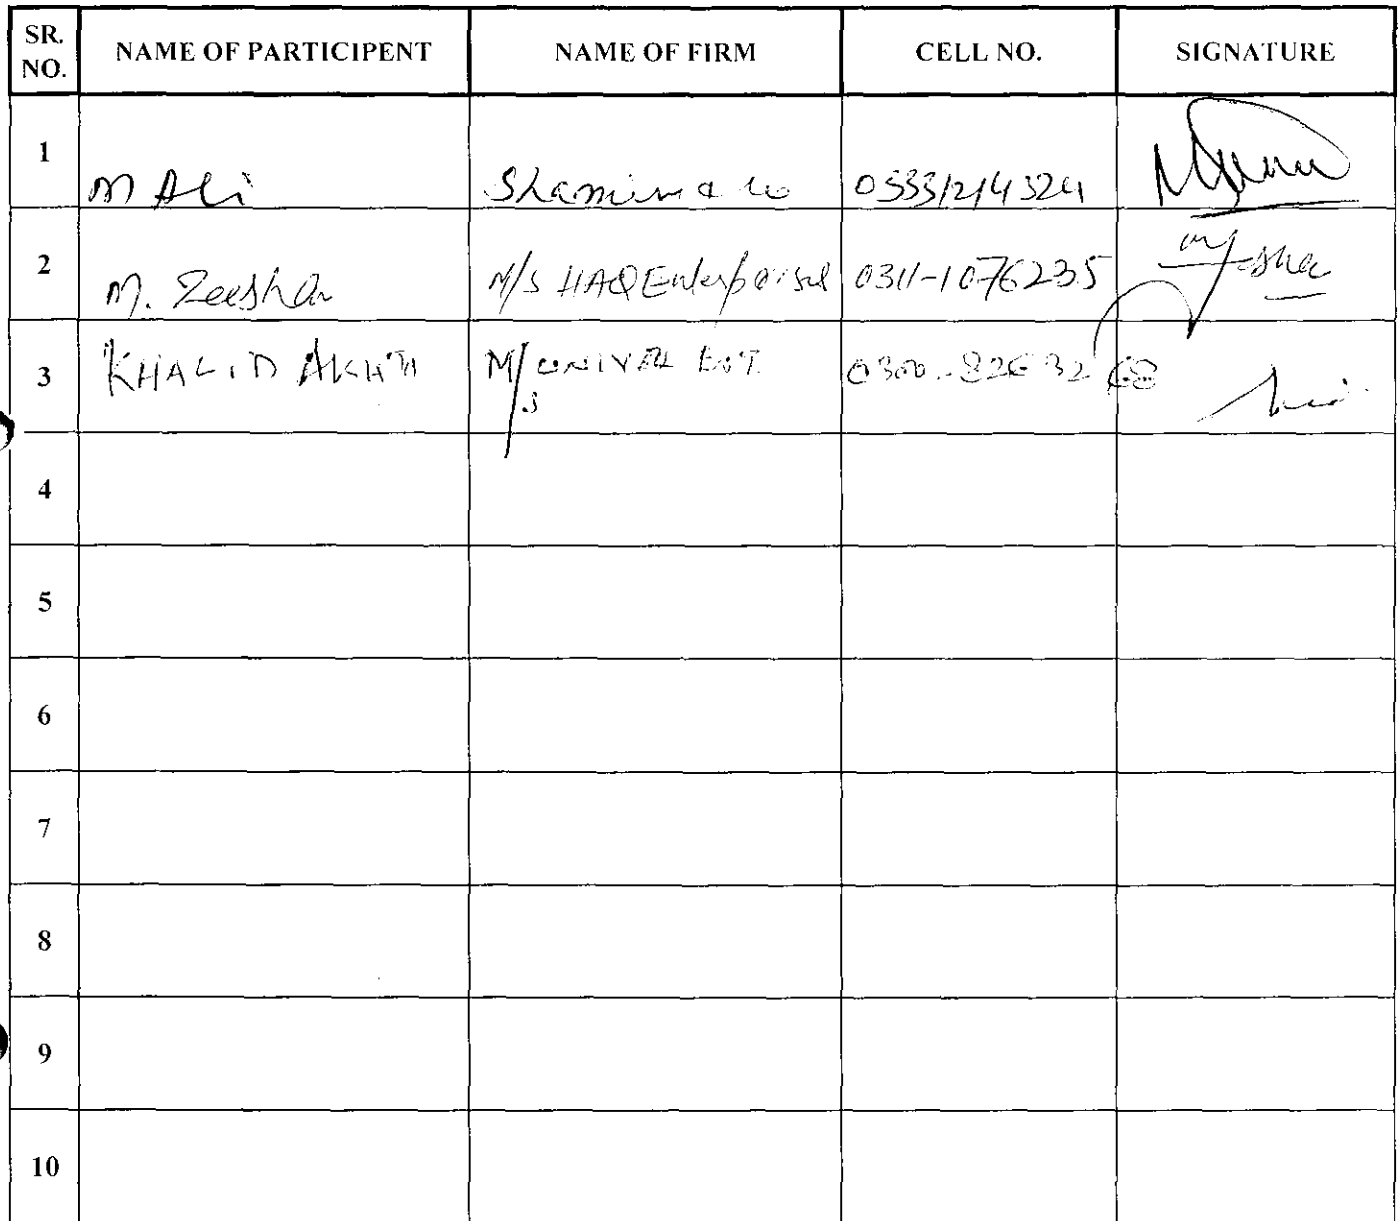 SR. NO. NAME OF PARTICIPENT NAME OF FIRM CELL NO. SIGNATURE
1 M Ali Shamim & Co
2 M. Zeeshan M/S HAQ Enterprises 0311-1076235
3 KHALID M/S 0300-8263268
4
5
6
7
8
9
10